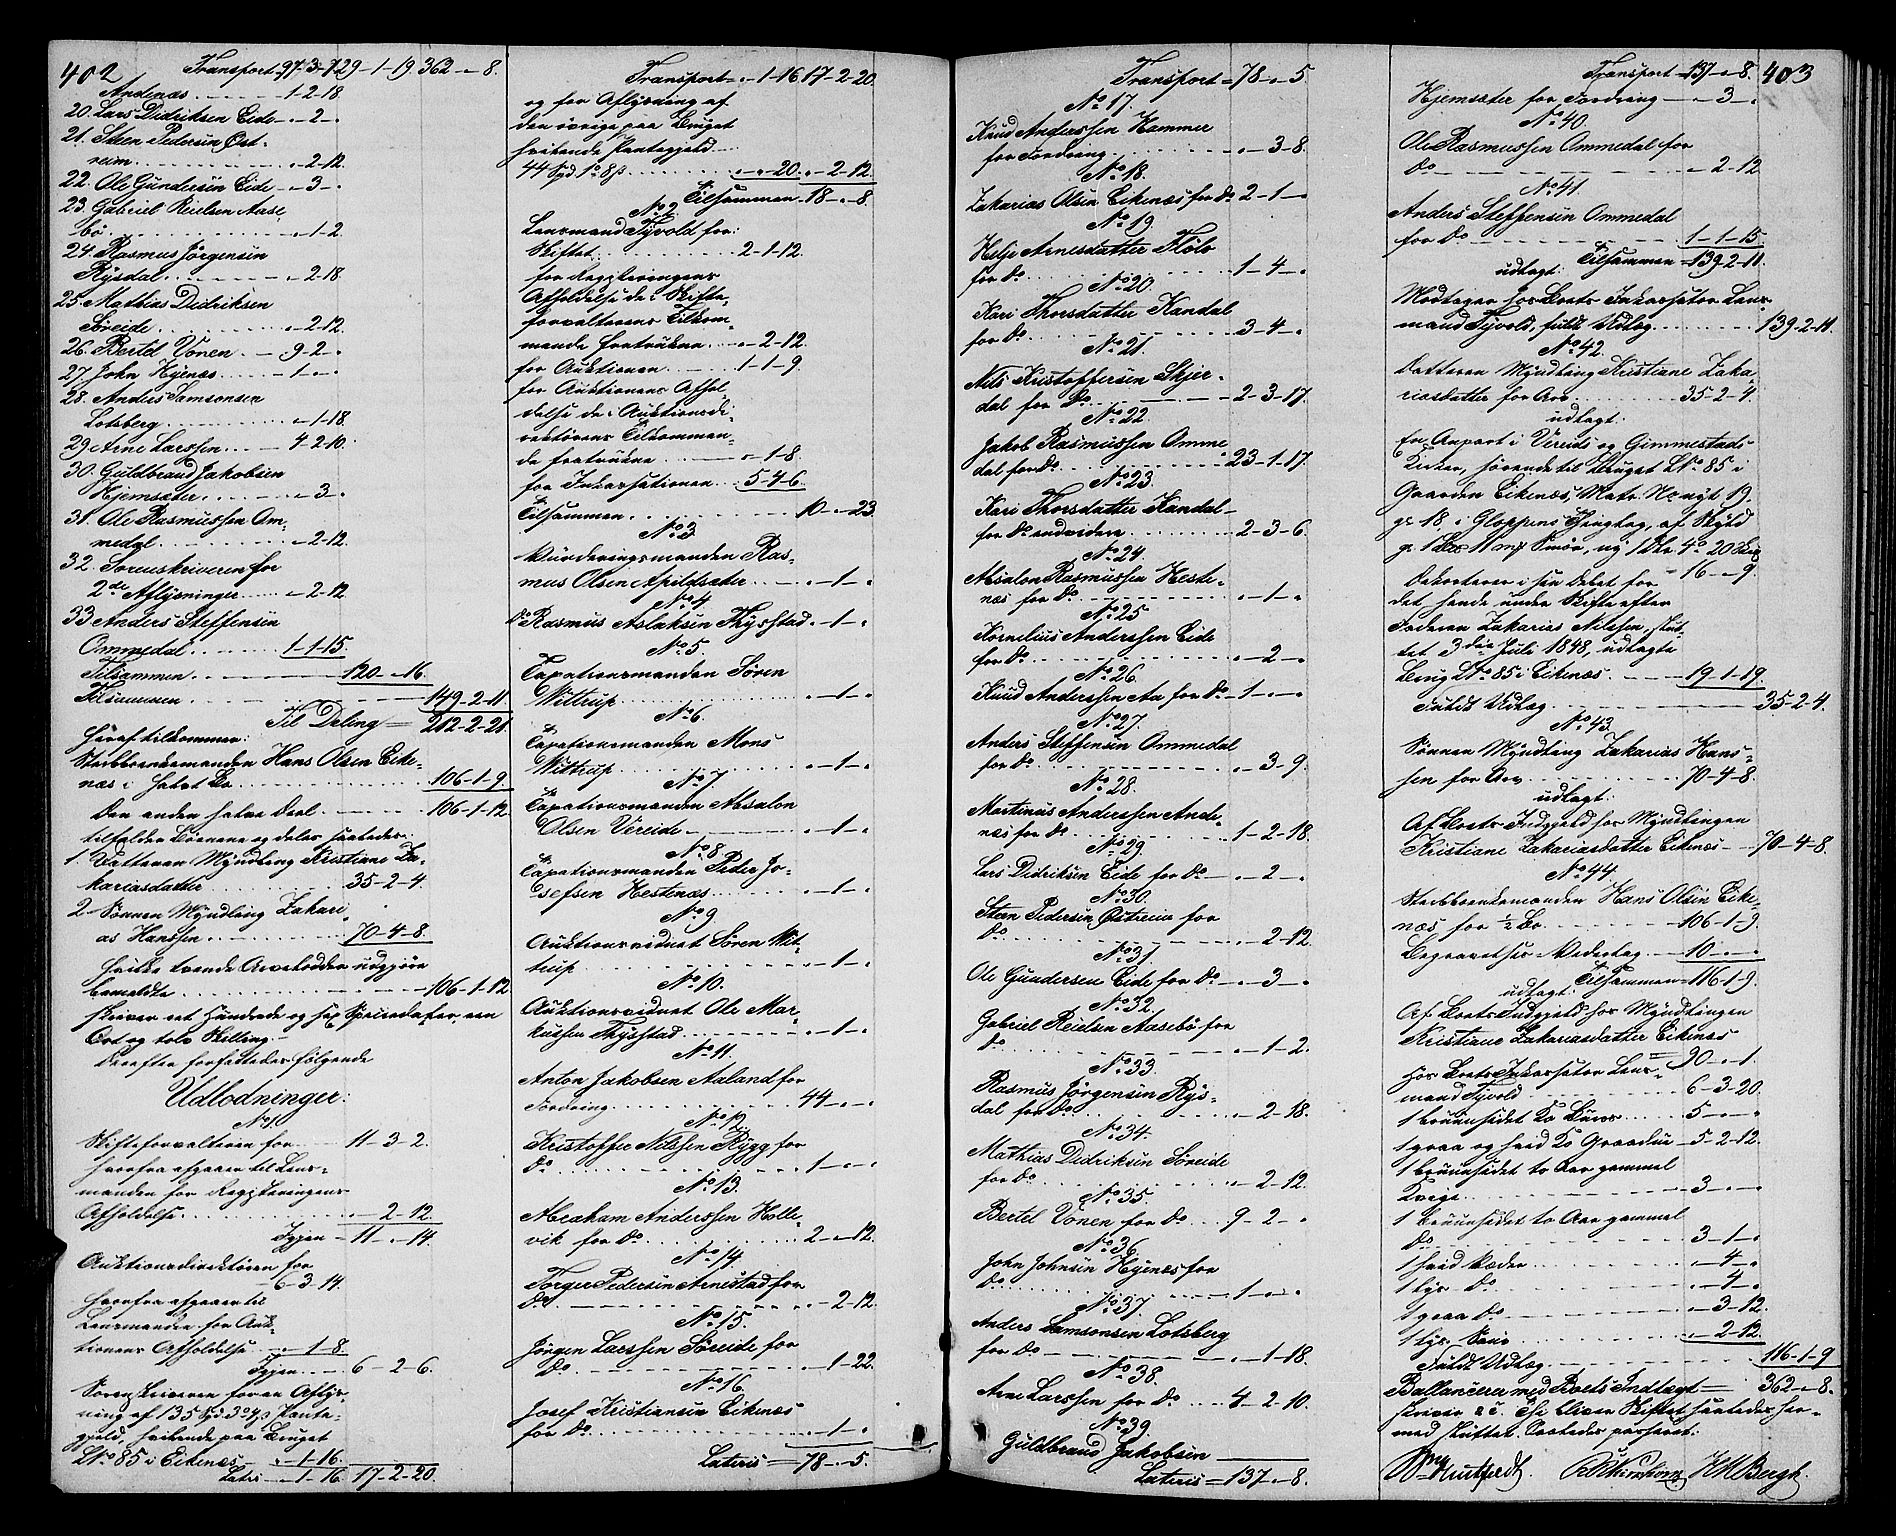 402 Transport 97-3-7 29-1-19 362 „ 8.
Andenæs 1-2-18
20. Lars Didriksen Eide „-2-„
21. Steen Pedersen Øst-
reim „-2-12
22. Ole Gundersen Eide „-3-„
23. Gabriel Reielsen Aase
bø „-1-2
24. Rasmus Jørgensen
Rysdal „-2-18
25. Mathias Didriksen
Søreide „-2-12
26. Bertel Vonen 9-2-„
27. John Hyenæs 1-„-„
28. Anders Samsonsen
Lotsberg „-1-18
29. Arne Larssen 4-2-10
30. Guldbrand Jakobsen
Hjemsæter „-3-„
31. Ole Rasmussen Om-
medal „-2-12
32. Sorenskriveren for
2de Aflysninger „-2-12
33. Anders Steffensen
Ommedal 1-1-15
Tilsammen 120-„-16
Tilsammen 149-2-11
Til Deling = 212-2-21.
Heraf tilkommer:
Stervboenkemanden Hans Olsen Eike-
næs i halvt Bo 106-1-9
Den anden halve Deel 106-1-12
tilfalder Børnene og deles saaledes:
1. Datteren Myndling Kristiane Za-
kariasdatter 35-2-4
2. Sønnen Myndling Zakari-
as Hanssen 70-4-8
hvilke tvende Arvelodder udgjøre
bemeldte 106-1-12
skriver eet Hundrede og sex Speciedaler, een
Ort og tolv Skilling.
Derefter forfattedes følgende
Udlodninger:
No 1.
Skifteforvalteren for 11-3-2
hvorfra afgaaer til Lens-
manden for Registreringens
Afholdelse „-2-12
Igjen 11-„-14
Auktionsdirektøren for
6-3-14
hvorfra afgaaer til
Lensmanden for Auk-
tionens Afholdelse „-1-8
Igjen 6-2-6
Sorenskriveren for en Aflys-
ning af 135 Spd. 3 o 4 ß Pante-
gjeld, heftende paa Bruget
LNo 85 i Eikenæs „-1-16
Lateris „-1-16 17-2-20
Transport = „-1-16 17-2-20
og for Aflysning af
den øvrige paa Bruget
heftende Pantegjeld
44 Spd 1 o 8 ß „-„-20 „-2-12
Tilsammen 18-„-8
No 2
Lensmand Tyvold for:
Skiftet 2-1-12
for Registreringens
Afholdelse de i Skifte-
forvalterens Tilkom-
mende fratrukne „-2-12
for Auktionen 1-1-9
for Auktionens Afhol-
delse de i Auktionsdi-
rektørens Tilkommen-
de fratrukne „-1-8
for Inkassationen 5-4-6
Tilsammen 10-„-23
No 3
Vurderingsmanden Ras-
mus Olsen Apildsæter „-1-„
No 4
Do Rasmus Aslaksen Thystad „-1-„
No 5.
Taxationsmanden Søren
Wittrup „-1-„
No 6.
Taxationsmanden Mons
Wittrup „-1-„
No 7
Taxationsmanden Absalon
Olsen Vereide „-1-„
No 8
Taxationsmanden Peder Jo-
sefsen Hestenæs „-1-„
No 9
Auktionsvidnet Søren Wit-
trup „-1-„
No 10.
Auktionsvidnet Ole Mar-
kussen Thystad „-1-„
No 11.
Anton Jakobsen Aaland for
Fordring 44-„-„
No 12
Kristoffer Nilssen Rygg for
Do 1-„-„
No 13.
Abraham Anderssen Holle-
vik for Do 2-„-12
No 14.
Torger Pedersen Arnestad for
Do „-2-12
No 15.
Jørgen Larssen Søreide for
Do „-1-22
No 16.
Josef Kristiansen Eikenæs
for Do „-1-„
Lateris = 78-„-5.
Transport = 78-„-5
No 17.
Knud Anderssen Hammer
for Fordring „-3-8
No 18.
Zakarias Olsen Eikenæs for Do 2-1-„
No 19.
Helje Arnesdatter Fløto
for Do 1-4-„
No 20.
Kari Thorsdatter Kandal
for Do 3-4-„
No 21.
Nils Kristoffersen Skjer-
dal for Do 2-3-17
No 22.
Jakob Rasmussen Omme
dal for Do 23-1-17
No 23.
Kari Thorsdatter Kandal
for Do endvidere 2-3-6
No 24
Absalon Rasmussen Heste-
næs for Do „-1-„
No 25
Kornelius Anderssen Eide
for Do „-2-„
No 26.
Knud Anderssen Aa for Do 1-„-„
No 27.
Anders Steffensen Ommedal
for Do „-3-9
No 28.
Martinus Anderssen Ande-
næs for Do 1-2-18
No 29.
Lars Didriksen Eide for Do „-2-„
No 30.
Steen Pedersen Østreim for
Do „-2-12
No 31.
Ole Gundersen Eide for Do „-3-„
No 32.
Gabriel Reielsen Aasebø for
Do „-1-2
No 33.
Rasmus Jørgensen Rys-
dal for Do „-2-18
No 34.
Mathias Didriksen Søreide
for Do „-2-12
No 35
Bertel Vonen for Do 9-2-„
No 36.
John Johnsen Hyenæs for
Do 1-„-„
No 37.
Anders Samsonsen Lotsberg
for Do „-1-18
No 38.
Arne Larssen for Do 4-2-10
No 39.
Guldbrand Jakobsen
Lateris = 137-„-8.
Transport 137-„-8. 403
Hjemsæter for Fordring „-3-„
No 40.
Ole Rasmussen Ommedal for
Do „-2-12
No 41.
Anders Steffensen Ommedal
for Do 1-1-15
Tilsammen 139-2-11
udlagt:
Modtager hos Boets Inkassator Lens-
mand Tyvold, fuldt Udlæg 139-2-11
No 42.
Datteren Myndling Kristiane Zaka-
riasdatter for Arv 35-2-4
udlagt:
en Anpart i Vereids og Gimmestads
Kirker, hørende til Bruget LNo 85 i
Gaarden Eikenæs, Matr. No nyt 19,
gl. 18, i Gloppens Thinglag, af Skyld
gl. 1 Løb 11 mrk Smør, ny 1 Dlr 4 o 20 ß
Dekorterer i sin Debet for 16-„-9
det hende under Skifte efter
Faderen Zakarias Nilssen, slut-
tet 3die Juli 1848, udlagte
Brug LNo 85 i Eikenæs 19-1-19
Fuldt Udlæg 35-2-4
No 43.
Sønnen Myndling Zakarias Hans-
sen for Arv 70-4-8
udlagt:
Af Boets Indgjeld hos Myndlingen
Kristiane Zakariasdatter Eikenæs 70-4-8
No 44.
Stervboenkemanden Hans Olsen Eike-
næs for ½ Bo 106-1-9
Begravelses-Vederlag 10-„-„
Tilsammen 116-1-9
udlagt:
Af Boets Indgjeld hos Myndlingen
Kristiane Zakariasdatter Eikenæs
90-„-1
Hos Boets Inkassator Lens-
mand Tyvold 6-3-20
1 bruunsidet Ko 5-„-„
1 graa og hvid Ko Graadue 5-2-12
1 bruunsidet to Aar gammel
Kvige 3-„-„
1 bruunsidet to Aar gammel
Do 3-1-„
1 hvid Væder „-4-„
1 lys Do „-4-„
1 graa Do „-3-12
1 lys Sau „-2-12
Fuldt Udlæg 116-1-9
Ballancerer med Boets Indtægt = 362-„-8.
skriver &c. Thi bliver Skiftet saaledes her-
med sluttet. Saaledes passeret:
H M Bergh.